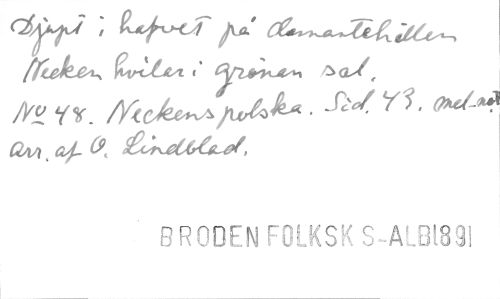 Djupt i hafvet på demantehällen
Necken hvilar i grönan sal.
No 48. Neckens polska. Sid. 43. mel. not
arr. af O. Lindblad.
BRODEN FOLKSK S-ALB1891